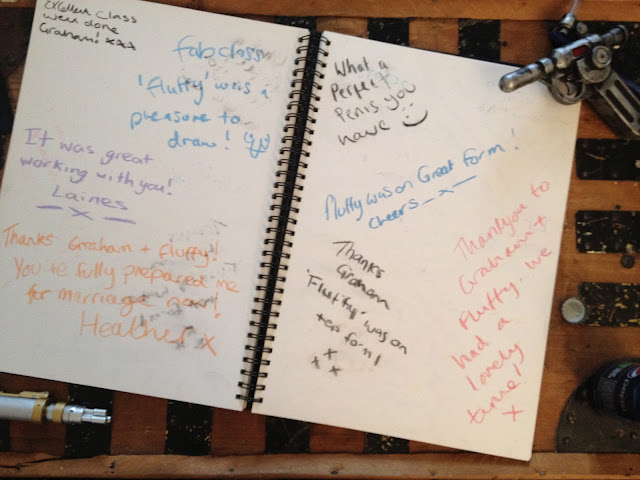 Excellent class
well done
Graham! xxx
fab class
'fluffy' was a
pleasure to
draw!
It was great
working with you!
Laines
x
Thanks Graham + fluffy!
You've fully prepared me
for marriage now!
Heather x
What a
Perfect
Penis you
have
Fluffy was on Great form!
cheers x
Thanks
Graham
'Fluffy' was on
top form!
x x
x
Thankyou to
Graham +
Fluffy. We
had a
lovely
time!
x